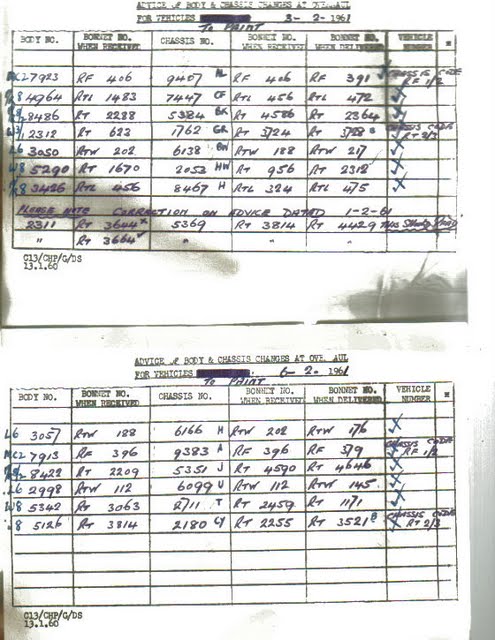 ADVICE OF BODY & CHASSIS CHANGES AT OVERHAUL
FOR VEHICLES 3-2-1961
TO PAINT
BODY NO. BONNET NO. WHEN RECEIVED CHASSIS NO. BONNET NO. WHEN RECEIVED BONNET NO. WHEN DELIVERED VEHICLE NUMBER
MCL 7923 RF 406 9407 RF 406 RF 391 CHASSIS CODE RF 1/2
4964 RTL 1483 7447 CF RTL 456 RTL 472
8486 RT 2288 5384 BK RT 4586 RT 2364
2312 RT 622 1762 GR RT 3724 RT 3728 B CHASSIS CODE RT 2/3
L6 3050 RTW 202 6138 BW RTW 188 RTW 217
W8 5290 RT 1670 2053 HW RT 956 RT 2312
3426 RTL 456 8467 H RTL 324 RTL 475
PLEASE NOTE CORRECTION ON ADVICE DATED 1-2-61
2311 RT 3644 x 5369 RT 3814 RT 4429 THIS SHOULD READ
" RT 3664 " " "
C13/CHP/G/DS
13.1.60
ADVICE OF BODY & CHASSIS CHANGES AT OVE AUL
FOR VEHICLES 6-2-1961
TO PAINT
BODY NO. BONNET NO. WHEN RECEIVED CHASSIS NO. BONNET NO. WHEN RECEIVED BONNET NO. WHEN DELIVERED VEHICLE NUMBER
L6 3057 RTW 188 6166 H RTW 202 RTW 176
MCL 7913 RF 396 9383 A RF 396 RF 379 CHASSIS CODE RF 1/2
8422 RT 2209 5351 J RT 4590 RT 4646
L6 2998 RTW 112 6099 U RTW 112 RTW 145
W8 5342 RT 3063 2711 T RT 2459 RT 1171
8 5126 RT 3814 2180 CY RT 2255 RT 3521 B CHASSIS CODE RT 2/3
C13/CHP/G/DS
13.1.60